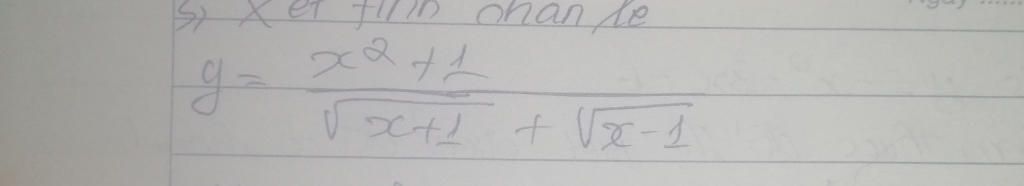 5, Xét tính chẵn lẻ
y = \frac{x^2+1}{\sqrt{x+1} + \sqrt{x-1}}